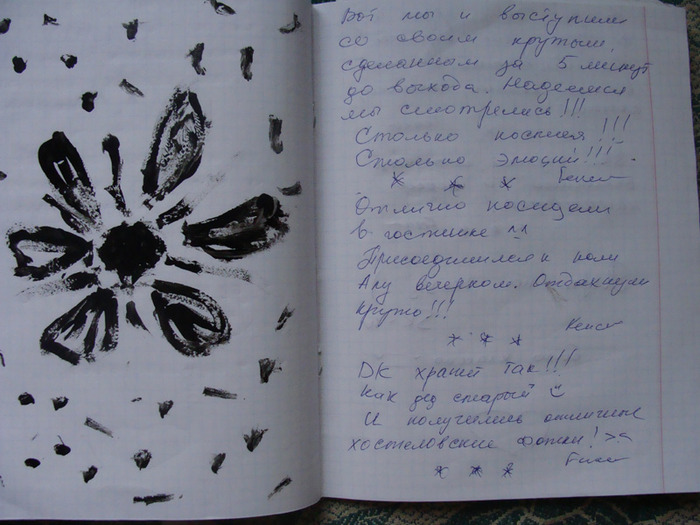 Вот мы и выступили
со своим крутым,
сделанном за 5 минут
до выхода. Надеемся
мы смотрелись!!!
Столько косплея!!!
Столько эмоций!!!
* * *
Отлично посидели
в гостинке ^^
Присоединился к нам
Ару вечерком. Отдохнули
круто!!!
* * *
ДК храпит так!!!
Как дед старый
И получились отличные
хостеловские фотки! >_<
* * *